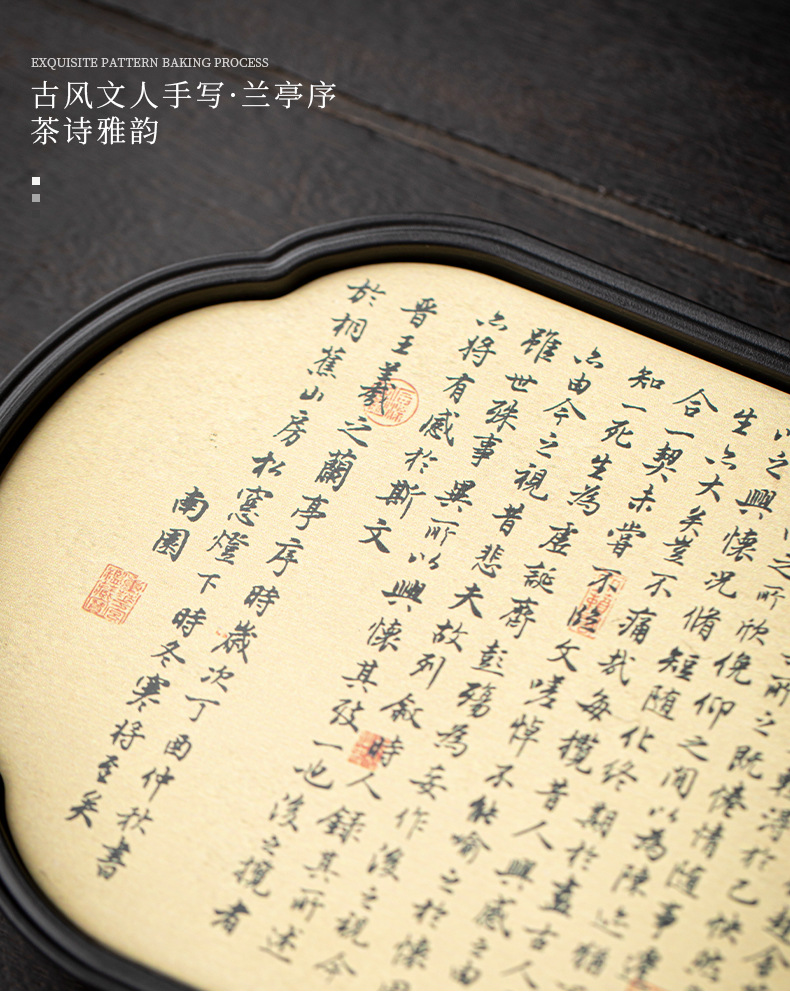 EXQUISITE PATTERN BAKING PROCESS
古风文人手写·兰亭序
茶诗雅韵
得於己快然
所之既倦情随事遷
所欣俛仰之間以為陳迹猶
之興懷況脩短随化終期於盡古人
生亦大矣豈不痛哉每攬昔人興感之由
合一契未嘗不臨文嗟悼不能喻之於懷固
知一死生為虛誕齊彭殤為妄作後之視今
亦由今之視昔悲夫故列敘時人錄其所述
雖世殊事異所以興懷其致一也後之攬者
亦將有感於斯文
晋王羲之蘭亭序時歲次丁酉仲秋書
於桐蕉山房松窓燈下時冬寒將至矣
南園